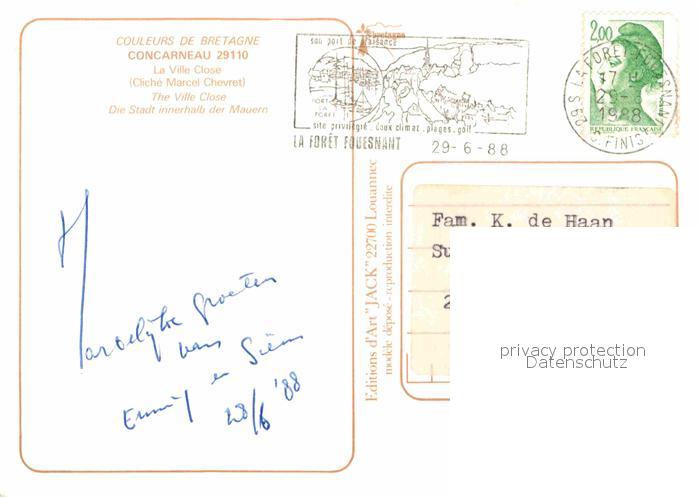 COULEURS DE BRETAGNE
CONCARNEAU 29110
La Ville Close
(Cliché Marcel Chevret)
The Ville Close
Die Stadt innerhalb der Mauern
Hartelijke groeten
van
en
28/6 '88
Bretagne
son port de plaisance
PORT
LA
FORET
site privilégié. doux climat. plages. golf
LA FORÊT FOUESNANT
29-6-88
2,00
REPUBLIQUE FRANÇAISE
17 H
29-6
1988
S. FINIST
Editions d'Art "JACK" 22700 Louannec
modèle déposé - reproduction interdite
Fam. K. de Haan
Su
2
privacy protection
Datenschutz